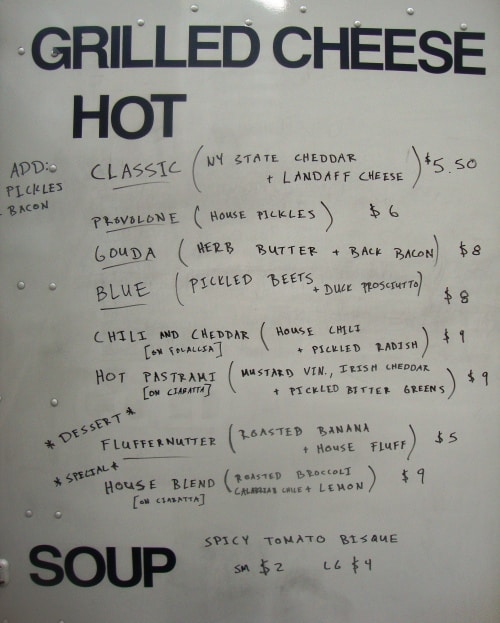 GRILLED CHEESE
HOT
ADD:
PICKLES
BACON
CLASSIC (NY STATE CHEDDAR
+ LANDAFF CHEESE) $5.50
PROVOLONE (HOUSE PICKLES) $6
GOUDA (HERB BUTTER + BACK BACON) $8
BLUE (PICKLED BEETS
+ DUCK PROSCIUTTO) $8
CHILI AND CHEDDAR (HOUSE CHILI
[ON FOCACCIA] + PICKLED RADISH) $9
HOT PASTRAMI (MUSTARD VIN., IRISH CHEDDAR
[ON CIABATTA] + PICKLED BITTER GREENS) $9
*DESSERT*
FLUFFERNUTTER (ROASTED BANANA
+ HOUSE FLUFF) $5
*SPECIAL*
HOUSE BLEND (ROASTED BROCCOLI
[ON CIABATTA] CALABRIAN CHILE + LEMON) $9
SOUP
SPICY TOMATO BISQUE
SM $2 LG $4